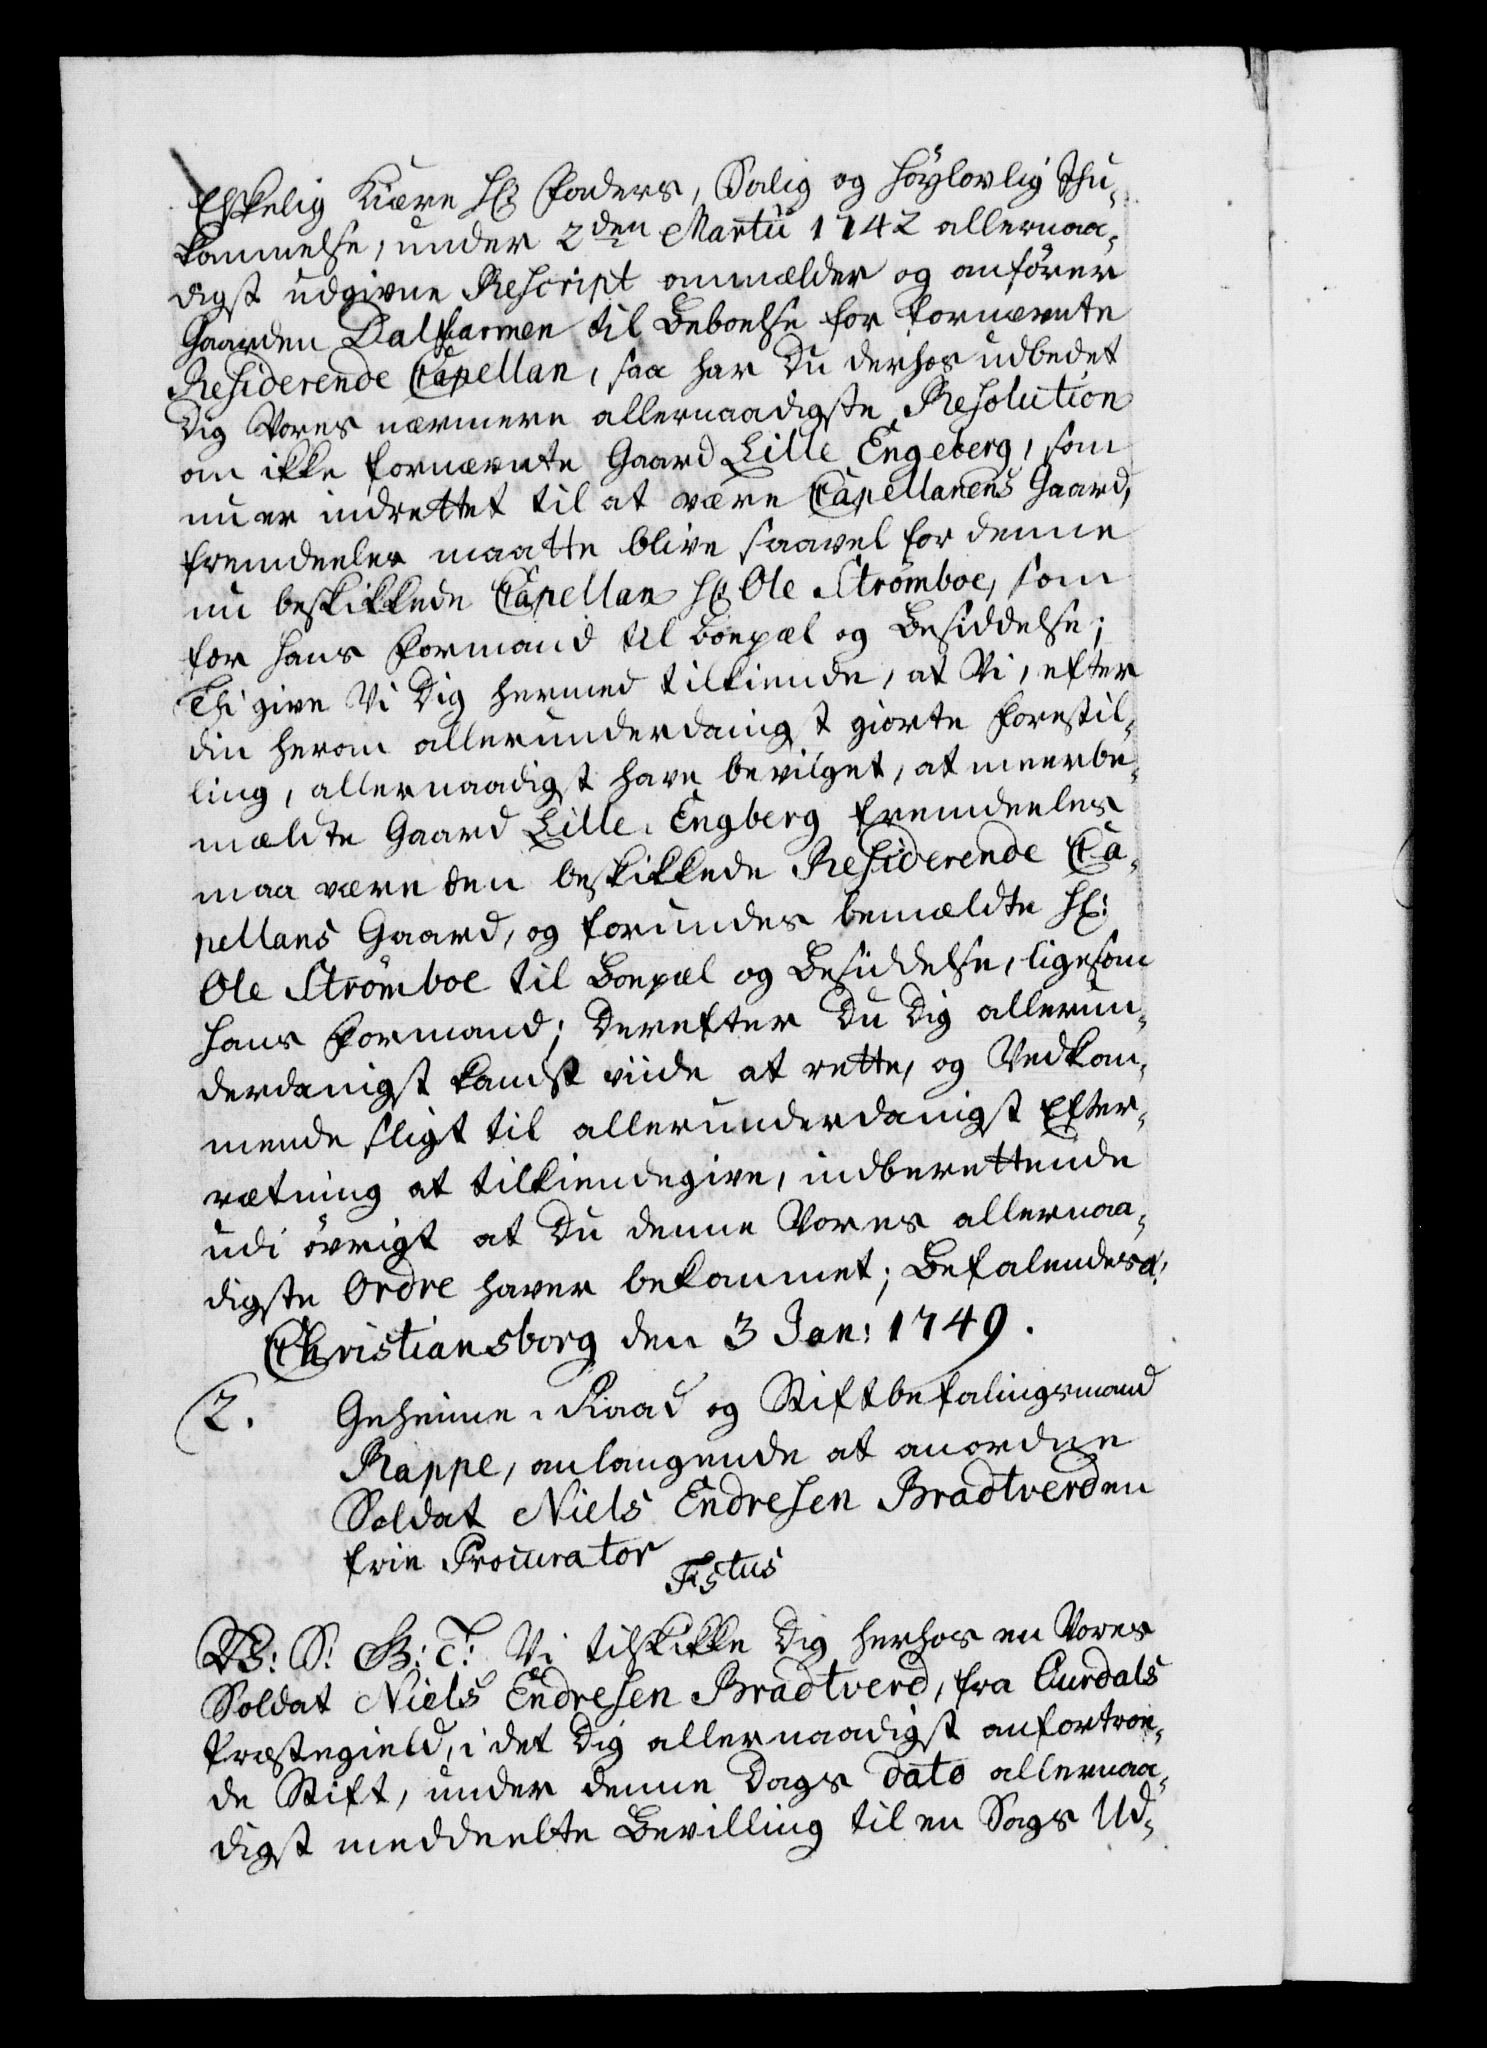 Elskelig Kiære Hr Faders, Salig og Høylovlig Ihu-
kommelse, under 2den Martii 1742 allernaa-
digst udgivne Rescript ommælder og anfører
Gaarden Dalskarmen til Beboelse for fornævnte
Residerende Capellan, saa har Du derhos udbedet
Dig Vores nærmere allernaadigste Resolution
om ikke fornævnte Gaard Lille Engeberg, som
nu er indrettet til at være Capellanens Gaard,
fremdeeles maatte blive saavel for denne
nu beskikkede Capellan Hr Ole Strömboe, som
for hans Formand til Boepæl og Besiddelse;
Thi give Vi Dig hermed tilkiende, at Vi, efter
din herom allerunderdanigst giorte Forestil-
ling, allernaadigst have bevilget, at meerbe-
mældte Gaard Lille Engberg fremdeeles
maa være den beskikkede Residerende Ca-
pellans Gaard, og forundes bemældte Hr:
Ole Strömboe til Boepæl og Besiddelse, ligesom
hans Formand; Derefter Du Dig allerun-
derdanigst kandst viide at rette, og Vedkom-
mende sligt til allerunderdanigst Efter-
rætning at tilkiendegive, indberettende
udi øvrigt at Du denne Vores allernaa-
digste Ordre haver bekommet; Befalendes &c:
Christiansborg den 3 Jan: 1749.
2. Geheime-Raad og Stiftbefalingsmand
Rappe, anlangende at anordne
Soldat Niels Endresen Bradtverden
frie Procurator
Fstus
V: S: G: T: Vi tilskikke Dig herhos en Vores
Soldat Niels Endresen Bradtverd, fra Aurdals
Præstegield, i det Dig allernaadigst anfortroe-
de Stift, under denne Dags dato allernaa-
digst meddeelte Bevilling til en Sags Ud-